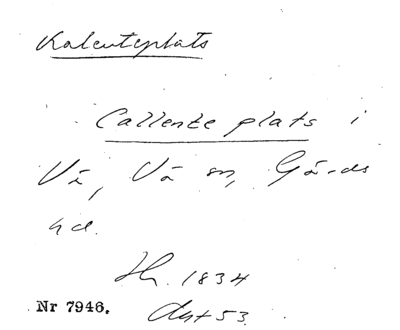 Kalenteplats
Callente plats i
Vä, Vä sn, Gärds
hd.
1834
Nr 7946. Akt 53